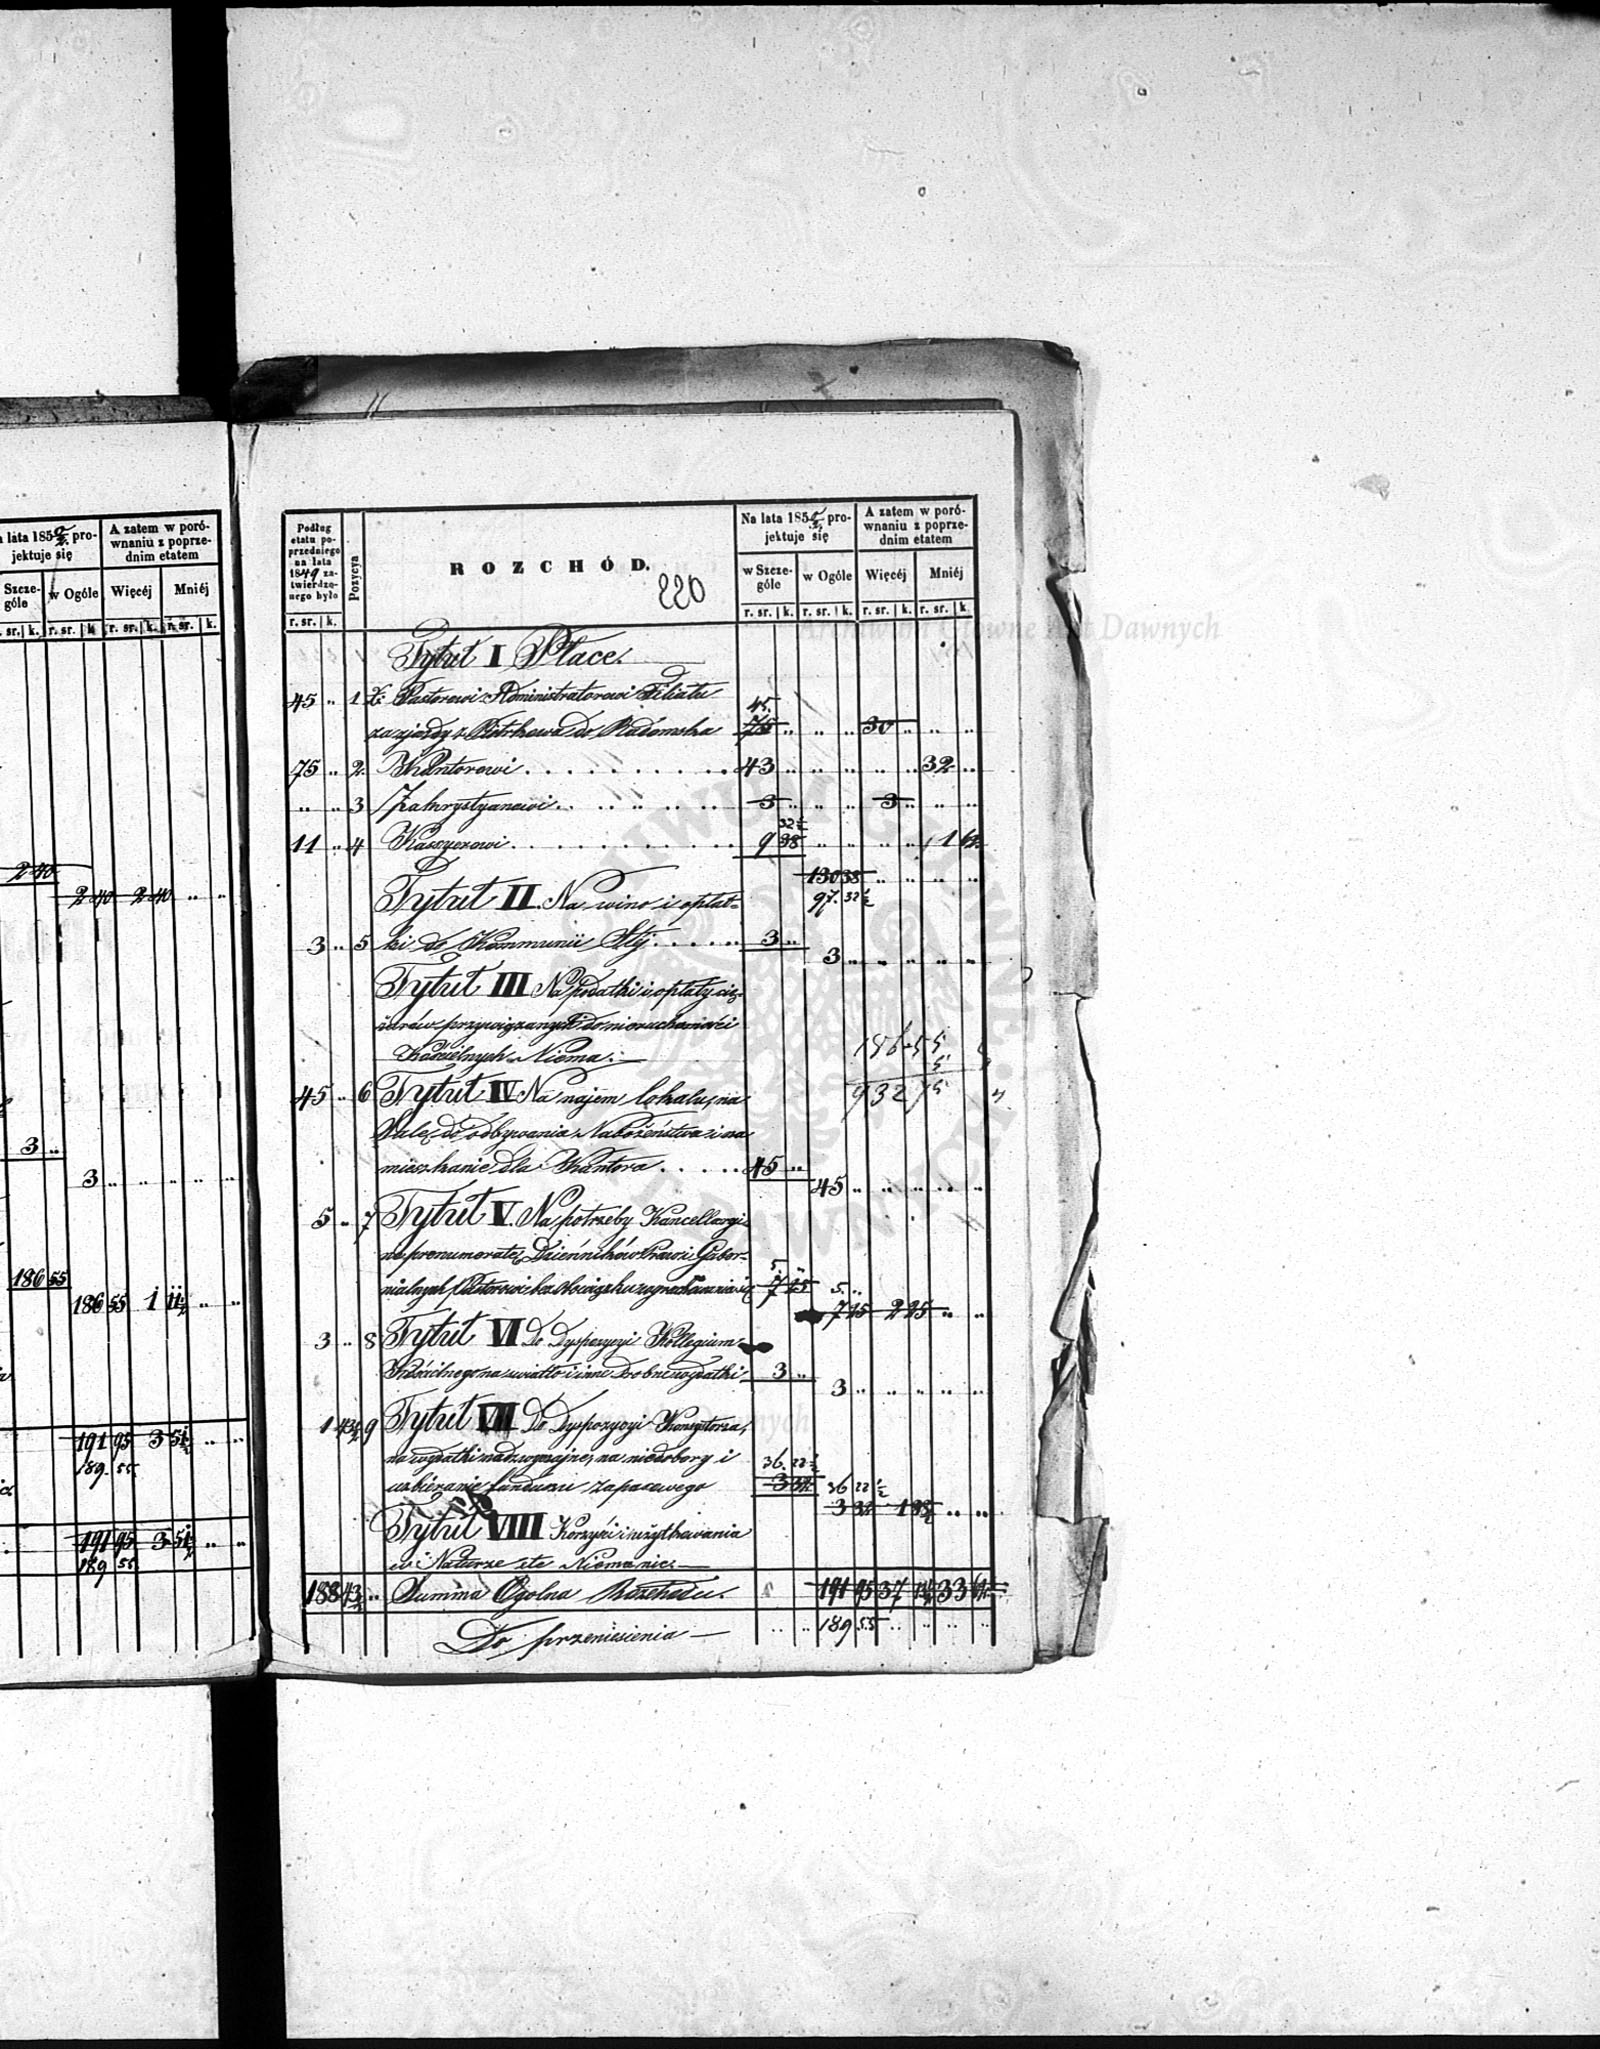 n lata 185 pro-
jektuje się
A zatem w poró-
wnaniu z poprze-
dnim etatem
Szcze-
góle
w Ogóle
Więcéj
Mniéj
r. sr. k. r. sr. k. r. sr. k. r. sr. k.
240
240 240 " "
3 "
3 " " " " "
186 55
186 55 1 11½ " "
191 95 3 51½ " "
189. 55.
191 95 3 51½ " "
189 55
Podług
etatu po-
przedniego
na lata
1849 za-
twierdzo-
nego było
Pozycya
ROZCHÓD.
220
Na lata 185 pro-
jektuje się
A zatem w poró-
wnaniu z poprze-
dnim etatem
w Szcze-
góle
w Ogóle
Więcéj
Mniéj
r. sr. k. r. sr. k. r. sr. k. r. sr. k. r. sr. k.
Archiwum Główne Akt Dawnych
Tytuł I Płace.
45 " 1 X. Pastorowi Administratorowi Filiału
45.
za zjazdy z Piotrkowa do Radomska 75 " " " 30 " " "
75 " 2. Kantorowi 43 " " " " " 32 "
" " 3 Zakrystyanowi 3 " " " 3 " " "
32½
11 " 4 Kassyerowi 9 38 " " " " 1 62
130 38 " " " "
Tytuł II. Na wino i opłat-
97. 32½
3 " 5 ki do Kommunii Stéj 3 "
3 " " " " "
Tytuł III Na podatki i opłaty cię-
żarów przywiązanych do nieruchomości
Kościelnych Niema.
186 55
5
932 75
45 " 6 Tytuł IV Na najem lokalu, na
Salę do odbywania Nabożeństwa i na
mieszkanie dla Kantora 45 "
45 " " " " "
5 " 7 Tytuł V. Na potrzeby Kancellaryi
na prenumeratę Dzienników Praw i Guber-
5. "
nialnych Pastorowi bez obowiązku wyrachowania się 7 25 5. "
7 25 2 25 " "
3 " 8 Tytuł VI Do Dyspozycyi Kollegium
Kościelnego na światło i inne drobne wydatki 3 "
3 " " " " "
1 43½ 9 Tytuł VII Do Dyspozycyi Konsystorza,
na wydatki nadzwyczajne, na niedobory i
36. 22½
uzbieranie funduszu zapasowego 3 32 36 22½
3 32 1 88½ " "
Tytuł VIII Korzyści i użytkowania
w Naturze etc Niema nic.
188 43½ " Summa Ogólna Rozchodu. 191 95 37 13½ 33 62
Do przeniesienia " " 189 55 " " " "